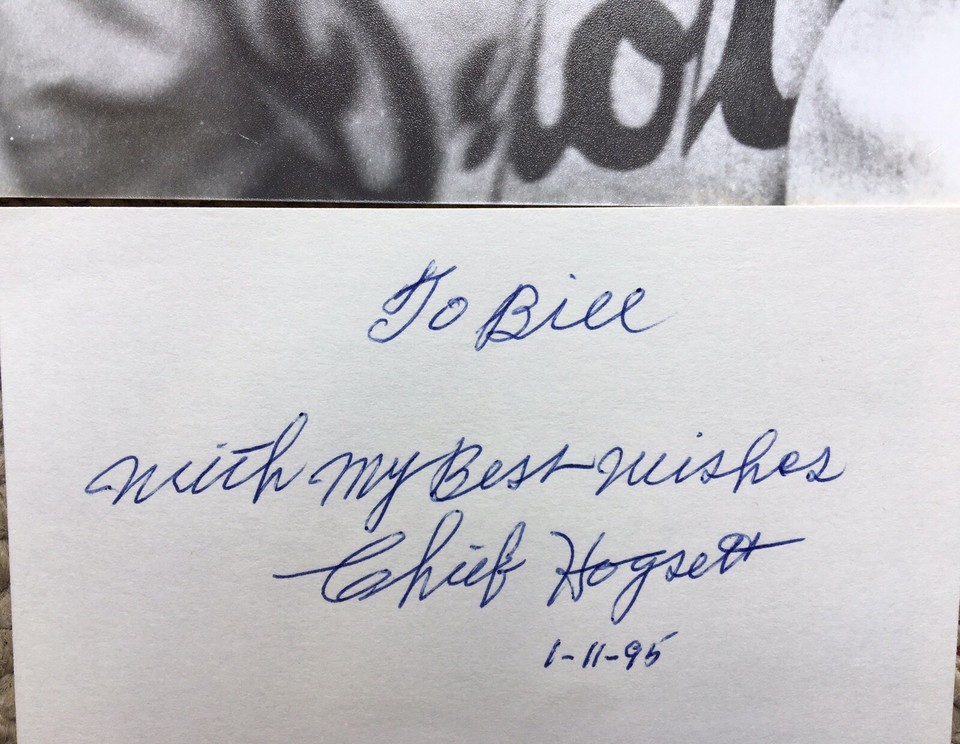 To Bill
with my Best wishes
Chief Hogsett
1-11-95